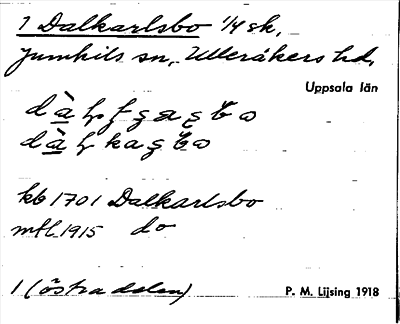 1 Dalkarlsbo 1/4 sk,
Jumkils sn., Ulleråkers hd,
Uppsala län
kb 1701 Dalkarlsbo
mtl. 1915 do
1 (östra delen)
P. M. Lijsing 1918